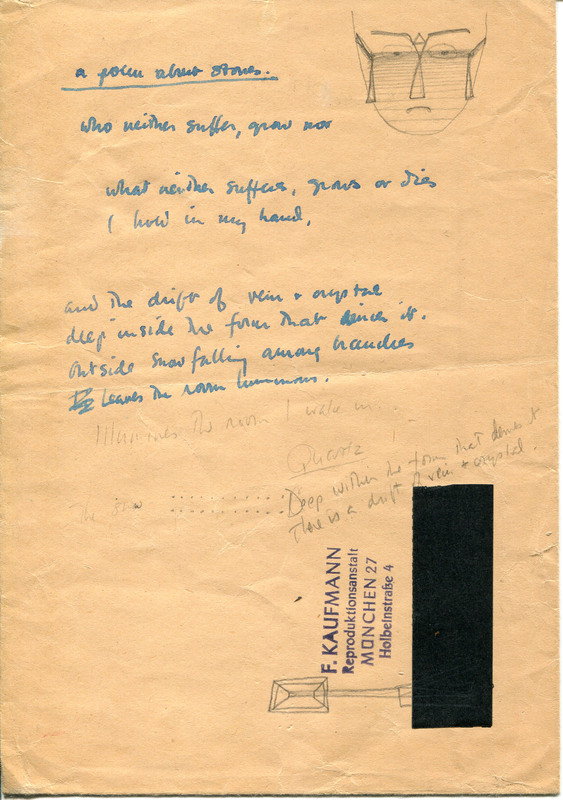 a poem about stones.
who neither suffer, grow nor
what neither suffers, grows or dies
I hold in my hand,
and the drift of vein + crystal
deep inside the form that denies it.
outside snow falling among branches
leaves the room luminous.
Illumines the room I wake in...
Quartz
The snow ..............
Deep within the form that denies it
There is a drift of vein + crystal.
F. KAUFMANN
Reproduktionsanstalt
MÜNCHEN 27
Holbeinstraße 4